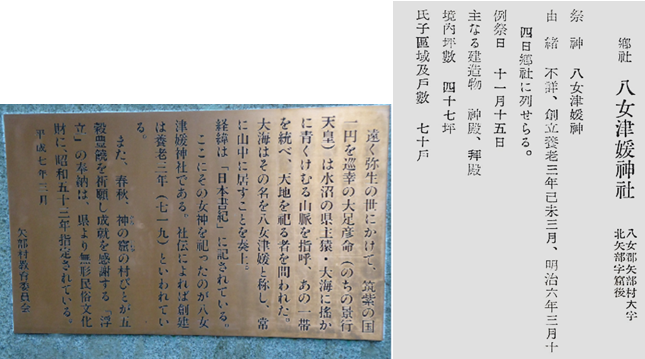 遠く弥生の世にかけて、筑紫の国
一円を巡幸の大足彦命（のちの景行
天皇）は水沼の県主猿・大海に遙か
に青くけむる山脈を指呼、あの一帯
を統べ、天地を祀る者を問われた。
大海はその名を八女津媛と称し、常
に山中に居すことを奏上。
経緯は「日本書紀」に記されている。
ここにその女神を祀ったのが八女
津媛神社である。社伝によれば創建
は養老三年（七一九）といわれてい
る。
また、春秋、神の窟の村びとが五
穀豊饒を祈願し成就を感謝する「浮
立」の奉納は、県より無形民俗文化
財に、昭和五十二年指定されている。
平成七年三月
矢部村教育委員会
郷社 八女津媛神社
八女郡矢部村大字
北矢部字窟後
祭神 八女津媛神
由緒 不詳、創立養老三年己未三月、明治六年三月十
四日郷社に列せらる。
例祭日 十一月十五日
主なる建造物 神殿、拝殿
境内坪數 四十七坪
氏子區域及戸數 七十戸